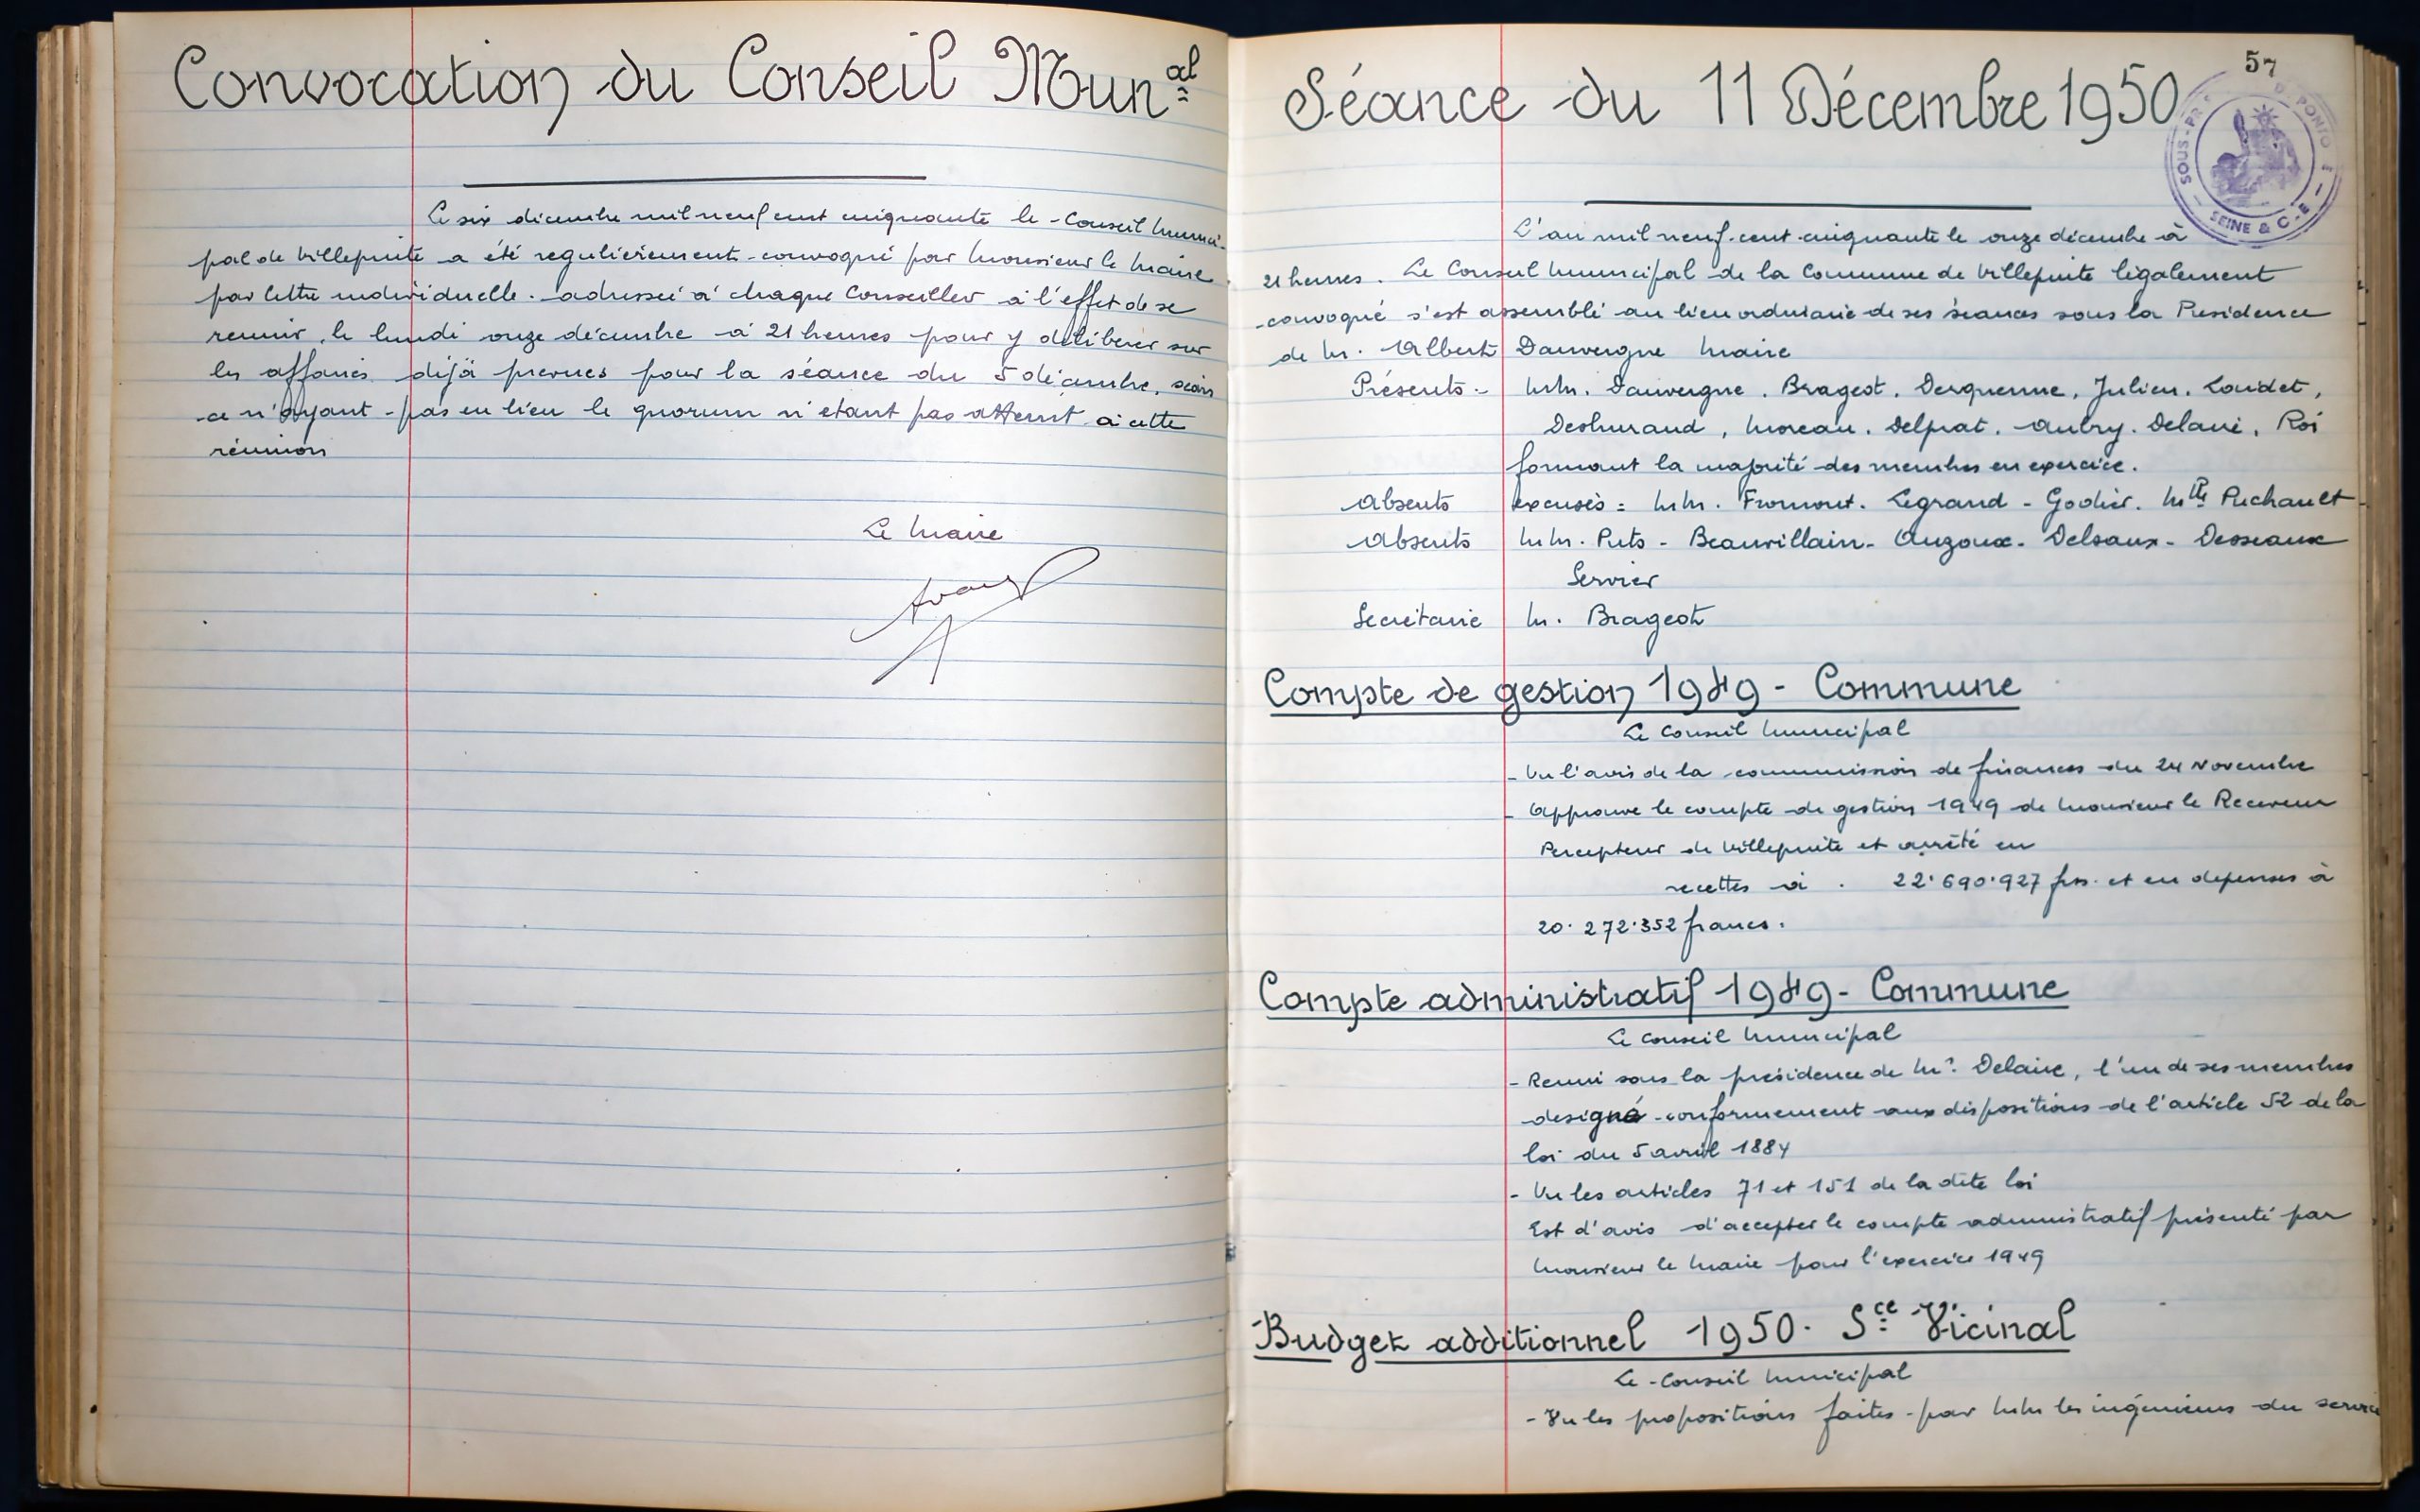 Convocation du Conseil Mun.al
Le six décembre mil neuf cent cinquante le Conseil Munici-
pal de Villepinte a été regulièrement convoqué par Monsieur le Maire
par lettre individuelle adressée à chaque Conseiller à l'effet de se
reunir, le lundi onze décembre à 21 heures pour y délibérer sur
les affaires déjà prevues pour la séance du 5 décembre, séan
ce n'ayant pas eu lieu le quorum n'etant pas atteint à cette
réunion
Le Maire
57
Séance du 11 Décembre 1950
SEINE & O
L'an mil neuf cent cinquante le onze décembre à
21 heures. Le Conseil Municipal de la Commune de Villepinte légalement
convoqué s'est assemblé au lieu ordinaire de ses séances sous la Presidence
de M. Albert Dauvergne Maire
Présents - MM. Dauvergne. Brageot. Desquenne, Julien. Loudet,
Deshuraud, Moreau. Delprat. Aubry. Delaire, Roi
formant la majorité des membres en exercice.
Absents excusés = MM. Fromont. Legrand - Godier. Mlle Puchault -
Absents MM. Puts - Beauvillain - Auzoux - Delsaux - Desseaux
Servier
Secrétaire M. Brageot
Compte de gestion 1949 - Commune
Le Conseil Municipal
- Vu l'avis de la commission de finances du 24 Novembre
- Approuve le compte de gestion 1949 de Monsieur le Receveur
Percepteur de Villepinte et arrêté en
recettes à . 22.690.927 frs. et en depenses à
20.272.352 francs.
Compte administratif 1949 - Commune
Le Conseil Municipal
- Reuni sous la présidence de Mr. Delaire, l'un de ses membres
designé conformement aux dispositions de l'article 52 de la
loi du 5 avril 1884
- Vu les articles 71 et 151 de la dite loi
Est d'avis d'accepter le compte administratif présenté par
Monsieur le Maire pour l'exercice 1949
Budget additionnel 1950. Sce Vicinal
Le Conseil Municipal
- Vu les propositions faites par MM les ingénieurs du service